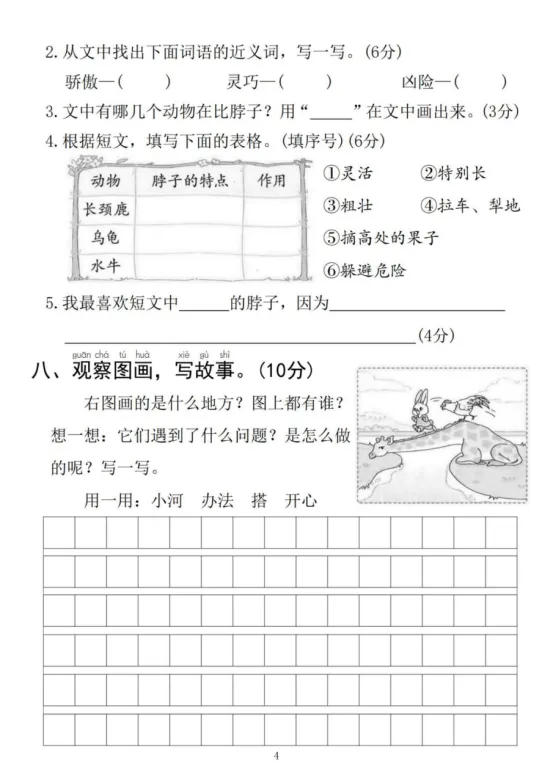 2.从文中找出下面词语的近义词，写一写。(6分)
骄傲—(    )    灵巧—(    )    凶险—(    )
3.文中有哪几个动物在比脖子？用“_____”在文中画出来。(3分)
4.根据短文，填写下面的表格。(填序号)(6分)
动物 脖子的特点 作用
长颈鹿
乌龟
水牛
①灵活 ②特别长
③粗壮 ④拉车、犁地
⑤摘高处的果子
⑥躲避危险
5.我最喜欢短文中______的脖子，因为____________________
________________________________________(4分)
guān chá tú huà xiě gù shi
八、观察图画，写故事。(10分)
右图画的是什么地方？图上都有谁？
想一想：它们遇到了什么问题？是怎么做
的呢？写一写。
用一用：小河 办法 搭 开心
4